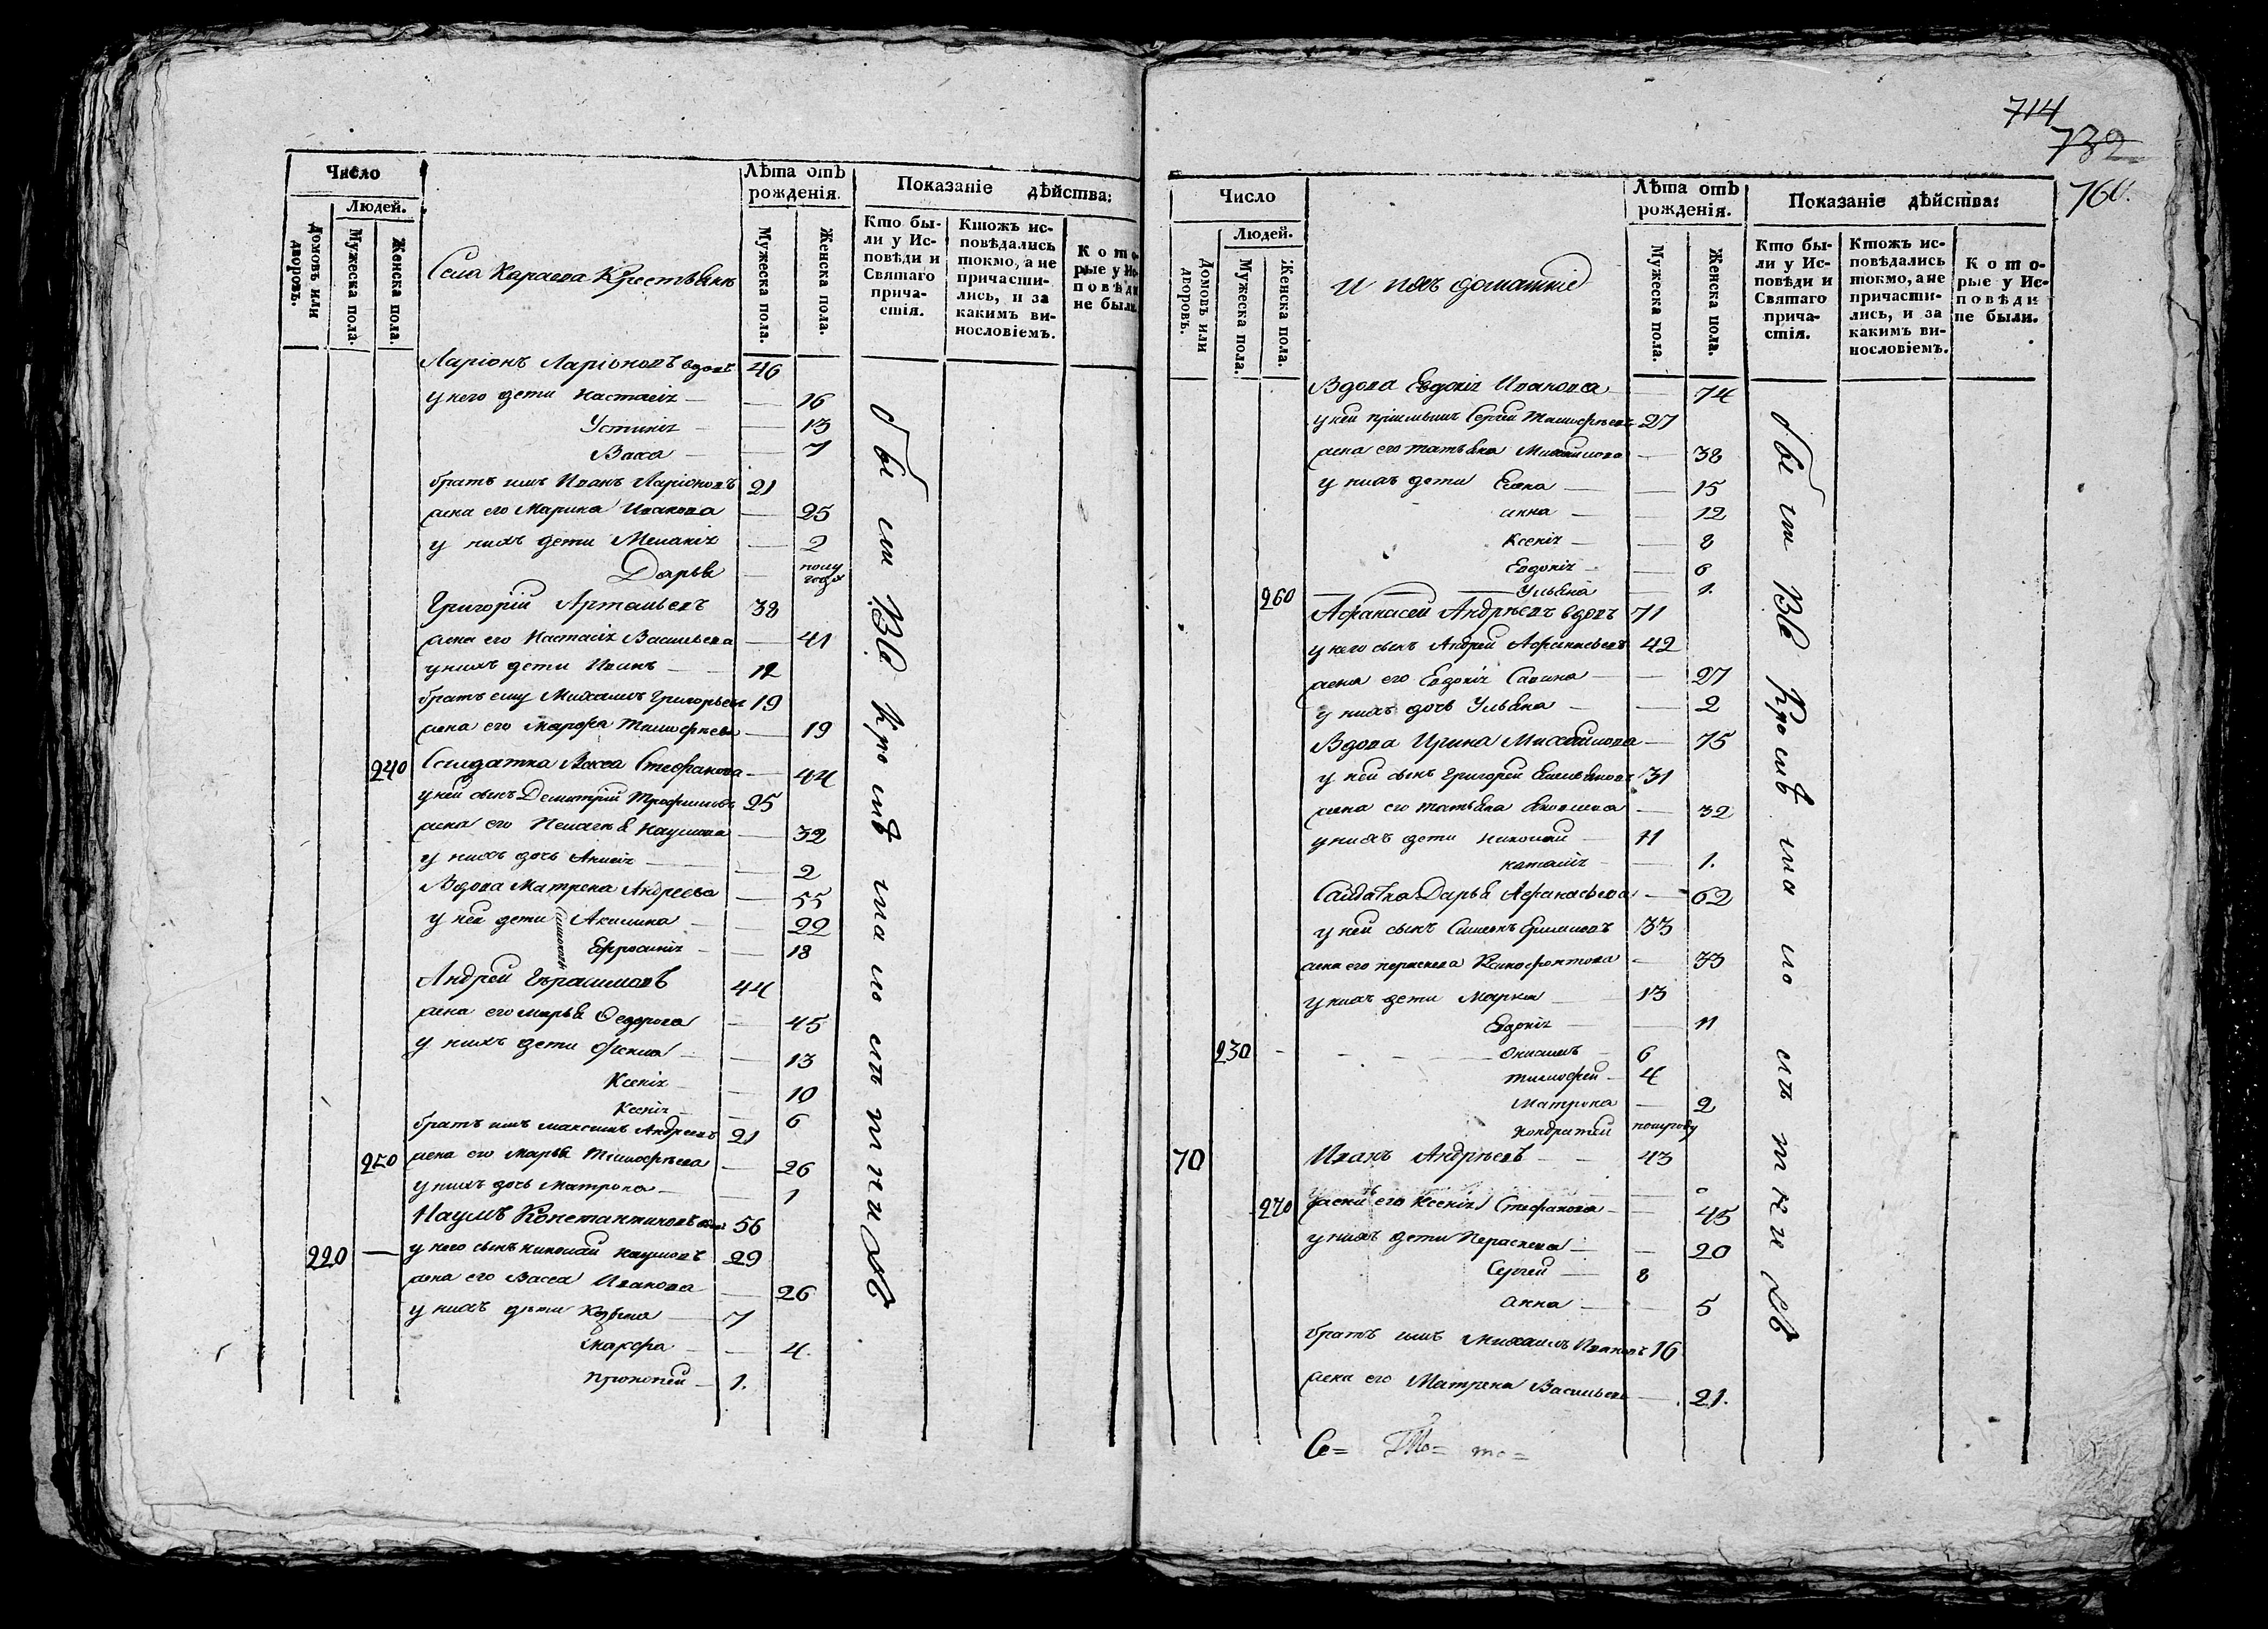 Число
Людей.
Домовъ или дворовъ.
Мужеска пола.
Женска пола.
Села Караева Крестьянъ
Лѣта отъ рожденія.
Мужеска пола.
Женска пола.
Показаніе дѣйства:
Кто были у Исповѣди и Святаго причастія.
Ктожъ исповѣдались токмо, а не причастились, и за какимъ винословіемъ.
Которые у Исповѣди не были.
Ларіонъ Ларіоновъ вдовъ 46
у него дети Настасія — 16
Устинія — 13
Васса — 7
братъ имъ Иванъ Ларіоновъ 21
жена его Марина Иванова — 25
у нихъ дети Меланія — 2
Дарья — полу года
Григорій Артемьевъ 38
жена его Настасія Васильева — 41
у нихъ дети Иванъ — 12
братъ ему Михаилъ Григорьевъ 19
жена его Марфа Тимофеева — 19
240 Солдатка Васса Стефанова — 44
у ней сынъ Димитрій Трофимовъ 25
жена его Пелагея Наумова — 32
у нихъ дочь Анисія — 2
Вдова Матрена Андреева — 55
у ней дети Акилина — 22
Ефросинія — 18
Андрей Герасимовъ 44
жена его Марья Федорова — 45
у нихъ дети Фекла — 13
Ксенія — 10
Ксенія — 6
братъ имъ Максимъ Андреевъ 21
250 жена его Марья Тимофѣева — 26
у нихъ дочь Матрона — 1
Наумъ Константиновъ вдовъ 56
220 — у него сынъ Николай Наумовъ 29
жена его Васса Иванова — 26
у нихъ дѣти Козьма — 7
Марфа — 4.
Прокопей — 1.
714
732
760.
Число
Людей.
Домовъ или дворовъ.
Мужеска пола.
Женска пола.
и ихъ домашніе
Лѣта отъ рожденія.
Мужеска пола.
Женска пола.
Показаніе дѣйства:
Кто были у Исповѣди и Святаго причастія.
Ктожъ исповѣдались токмо, а не причастились, и за какимъ винословіемъ.
Которые у Исповѣди не были.
Вдова Евдокія Иванова — 74
у ней пріемышъ Сергей Тимофеевъ 27
жена его Татьяна Михайлова — 38
у нихъ дети Елена — 15
Анна — 12
Ксенія — 8
Евдокія — 6
260 Ульяна — 1.
Афанасей Андрѣевъ вдовъ 71
у него сынъ Андрей Афанасьевъ 42
жена его Евдокія Савина — 27
у нихъ дочь Ульяна — 2
Вдова Ирина Михайлова — 75
у ней сынъ Григорей Емельяновъ 31
жена его Татьяна Яковлева — 32
у нихъ дети Николай — 11
Наталія — 1.
Салдатка Дарья Афанасьева — 62
у ней сынъ Симеонъ Филиповъ 33
жена его Пераскева Ксенофонтова — 33
у нихъ дети Марко — 13
Евдокія — 11
230 Онисимъ — 6
Тимофей — 4
Матрона — 2
Кондратей полугоду
70 Иванъ Андрѣевъ — 43
270 жена его Ксенія Стефанова — 45
у нихъ дети Пераскева — 20
Сергей — 8
Анна — 5
братъ имъ Михаилъ Ивановъ 16
жена его Матрена Васильева — 21.